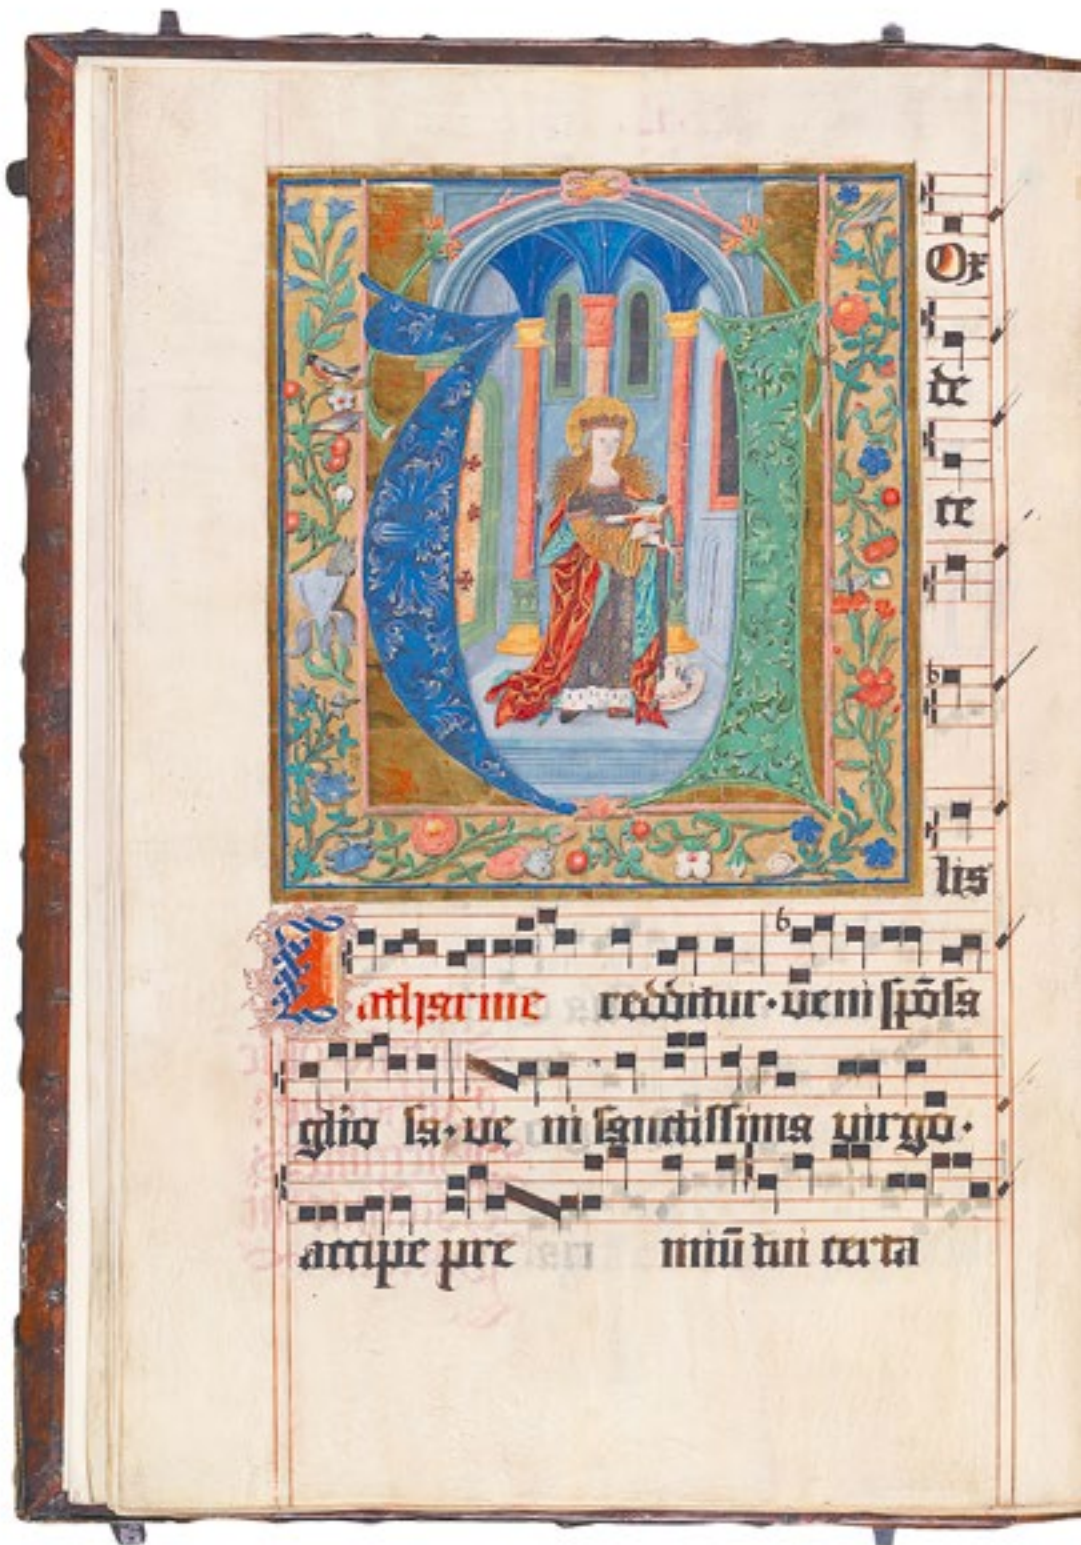 Ox
de
ce
lis
Katharine redditur · veni spōsa
glio sa · ve ni sanctissima virgo ·
accipe pre miū tui certa